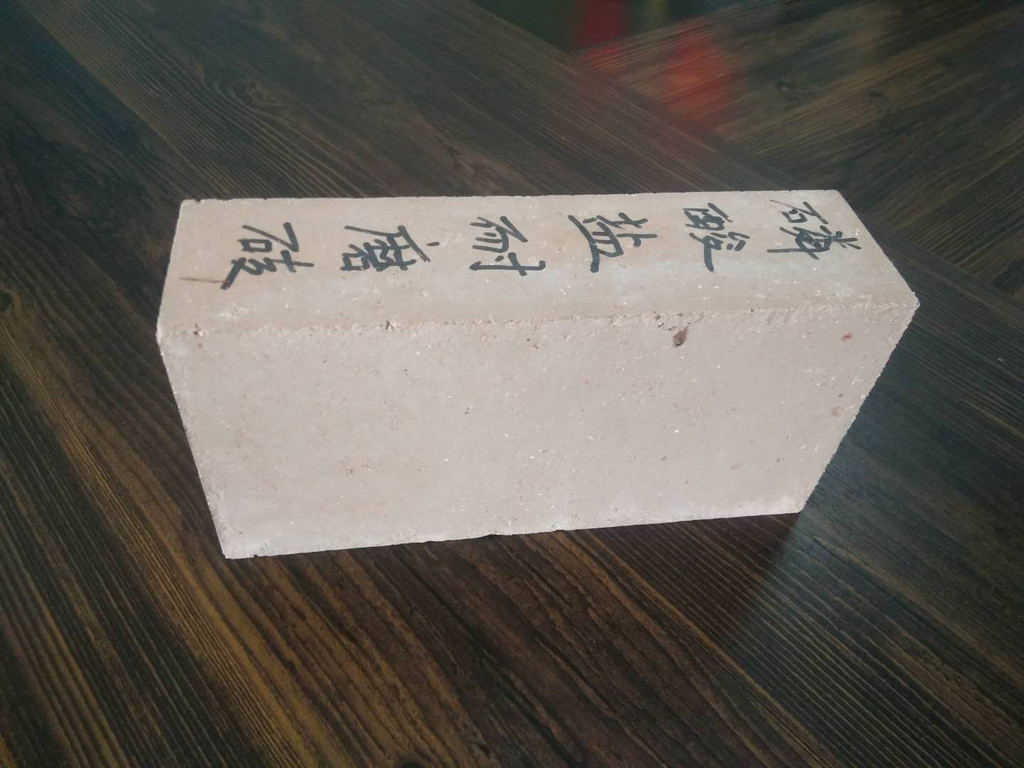 磷酸盐耐磨砖